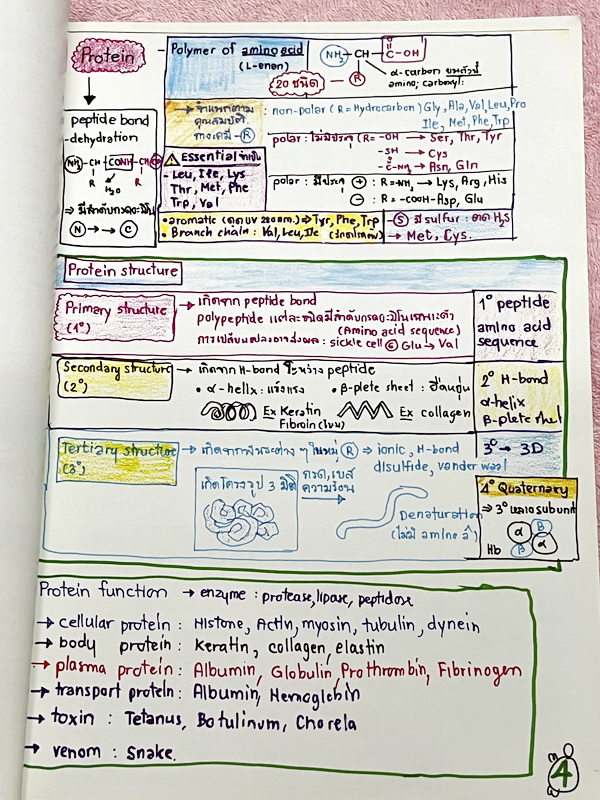 Protein
Polymer of amino acid
(L-enan)
NH₂ - CH - C - OH
O
R
20 ชนิด
α-carbon
amino, carboxyl
peptide bond
-dehydration
NH₂ - CH - CONH - CH
R
H₂O
R
⇒ มีลำดับกรดอะมิโน
N → → C
จำแนกตาม
คุณสมบัติ
ทางเคมี - R
non-polar (R = Hydrocarbon) Gly, Ala, Val, Leu, Pro
Ile, Met, Phe, Trp
polar : ไม่มีประจุ (R = -OH → Ser, Thr, Tyr
-SH → Cys
-C-NH₂ → Asn, Gln
polar : มีประจุ + : R = -NH₂ → Lys, Arg, His
- : R = -COOH - Asp, Glu
Essential จำเป็น
- Leu, Ile, Lys
Thr, Met, Phe
Trp, Val
• aromatic (ดูด UV 280 nm.) ⇒ Tyr, Phe, Trp
• Branch chain : Val, Leu, Ile
S มี sulfur : H₂S
→ Met, Cys.
Protein structure
Primary structure
(1°)
→ เกิดจาก peptide bond
polypeptide แต่ละชนิดมีลำดับกรดอะมิโนเฉพาะตัว
(Amino acid sequence)
การเปลี่ยนแปลงอาจส่งผล : sickle cell 6 Glu → Val
1° peptide
amino acid
sequence
Secondary structure
(2°)
→ เกิดจาก H-bond ระหว่าง peptide
• α-helix : แข็งแรง
• β-plete sheet : ยืดหยุ่น
Ex Keratin
Fibroin (ไหม)
Ex collagen
2° H-bond
α-helix
β-plete sheet
Tertiary structure
(3°)
→ เกิดจากพันธะต่าง ๆ ในหมู่ R ⇒ ionic, H-bond
disulfide, vander waal
3° → 3D
เกิดโครงรูป 3 มิติ
กรด, เบส
ความร้อน
Denaturation
4° Quaternary
⇒ 3° หลาย subunit
α β
β α
Hb
Protein function → enzyme : protease, lipase, peptidase
→ cellular protein : Histone, Actin, myosin, tubulin, dynein
→ body protein : Keratin, collagen, elastin
→ plasma protein : Albumin, Globulin, Prothrombin, Fibrinogen
→ transport protein : Albumin, Hemoglobin
→ toxin : Tetanus, Botulinum, Chorela
→ venom : Snake.
4